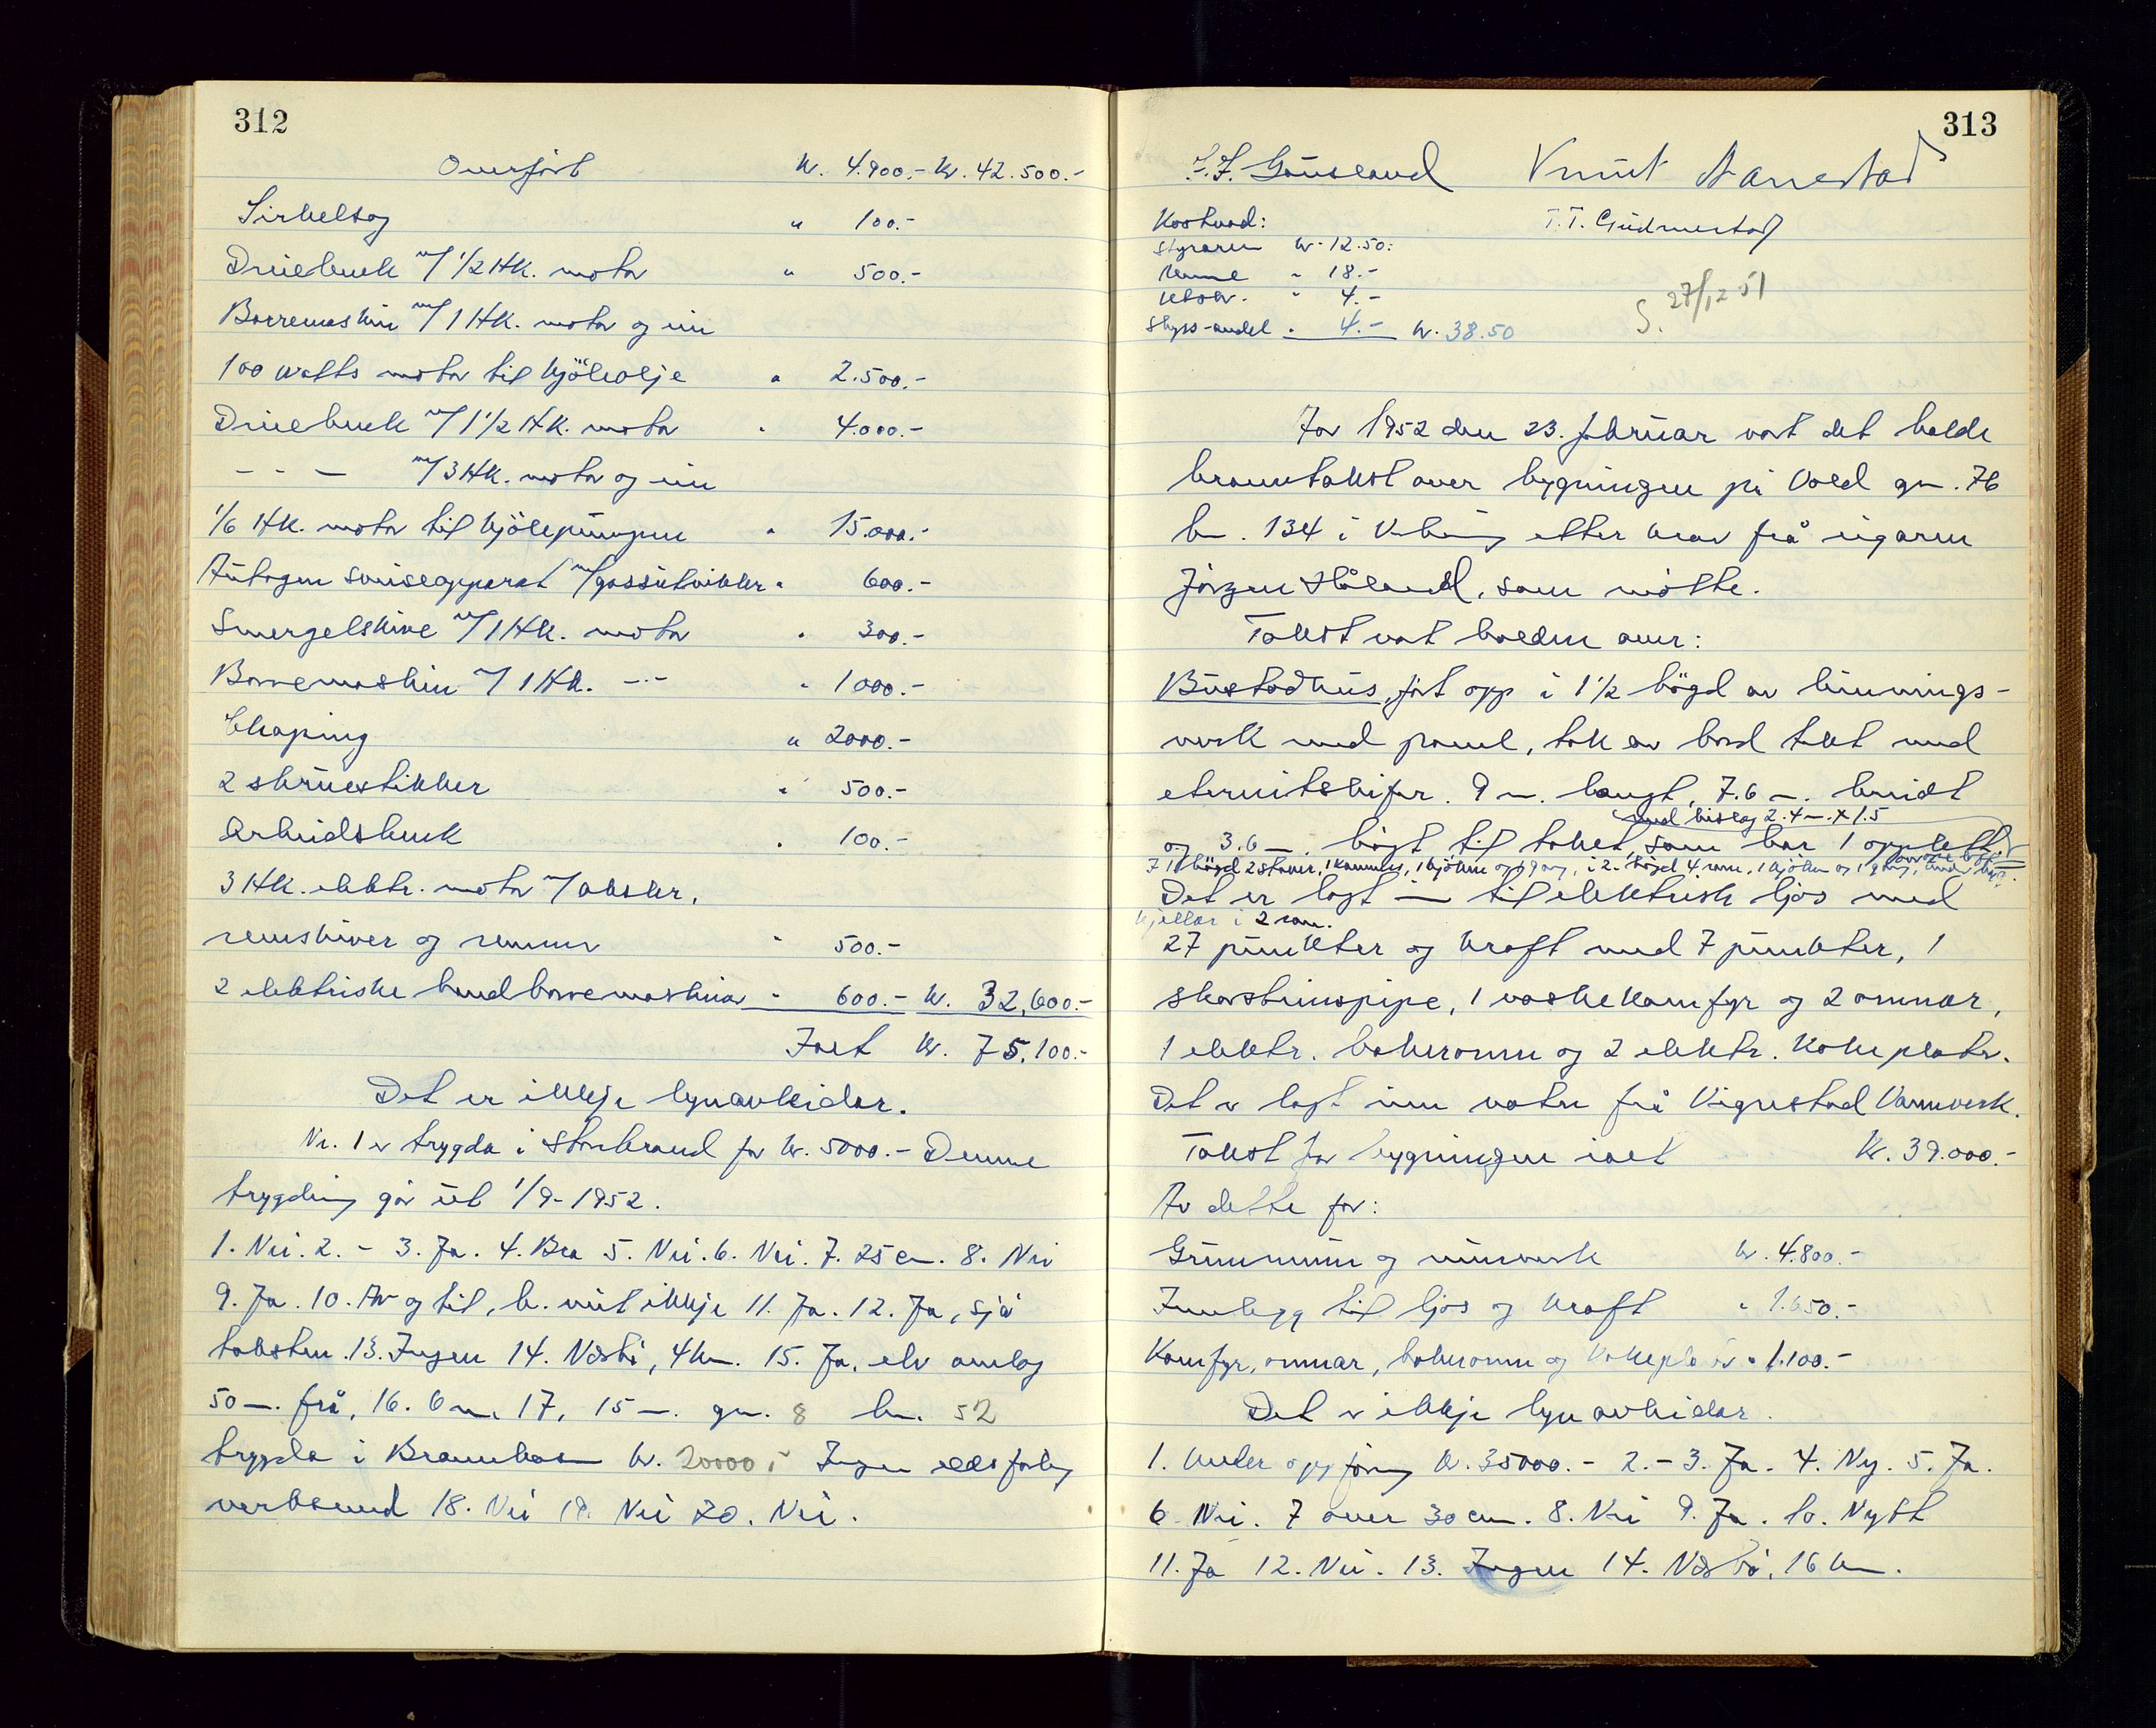 312
Overført kr. 4.900.- kr. 42.500.-
Sirkelsag " 100.-
Dreiebenk m/ 1/2 HK. motor " 500.-
Borremaskin m/ 1 HK. motor og ein
100 watts motor til kjöleolje " 2.500.-
Dreiebenk m/ 1 1/2 HK. motor " 4.000.-
- - - m/ 3 HK. motor og ein
1/6 HK. motor til kjölepumpen " 15.000.-
Autogen sveiseapparat m/gassutvikler " 600.-
Smergelskive m/ 1 HK. motor " 300.-
Borremaskin m/ 1 HK. -"- " 1000.-
Shaping " 2000.-
2 skruestikker " 500.-
Arbeidsbenk " 100.-
3 HK. elektr. motor m/aksler,
remskiver og remmer " 500.-
2 elektriske handborremaskinar " 600.- kr. 32,600.-
Iact kr. 75.100.-
Det er ikkje lynavleidar.
Nr. 1 er trygda i Storebrand for kr. 5000.- Denne
trygding går ut 1/9-1952.
1. Nei. 2. - 3. Ja. 4. Bra 5. Nei. 6. Nei. 7. 25 cm. 8. Nei
9. Ja. 10. Av og til, b. veit ikkje 11. Ja. 12. Ja, sjå
taksten. 13. Ingen 14. Nærbö, 4 km. 15. Ja, elv omlag
50 m. frå, 16. 6 m. 17. 15 m. gn. 8 bn. 52
trygda i Brannkassen kr. 20000 i Ingen eldsfarleg
verksemd 18. Nei 19. Nei 20. Nei.
313
Knut Aanestad
Kostnad: T. T. Gudmestad
Styraren kr. 12.50:
Menne " 18.-
Utskr. " 4.-
Skyss-andel " 4.- kr. 38.50
S. 27/12 51
År 1952 den 23. februar vart det halde
branntakst over bygningen på Vold gn. 76
bn. 134 i Varhaug etter krav frå eigaren
Jörgen Håland, som mötte.
Takst vart halden over:
Bustadhus, fört opp i 1 1/2 högd av binnings-
verk med panel, tak av bord tekt med
eternitskifer. 9 m. langt, 7.6 m. breidt
med bislag 2.4 m. x 1.5
og 3.6 m. högt til taket, som har 1 opplett.
I 1. högd 2 stover, 1 kammers, 1 kjöken og 1 gang, i 2. högd 4 rom, 1 kjöken og 1 gang, under bygn.
Det er lagt inn til elektrisk ljos med
kjellar i 2 rom.
27 punkter og kraft med 7 punkter, 1
skorsteinspipe, 1 vaskekomfyr og 2 omnar,
1 elektr. bakeromn og 2 elektr. kokeplater.
Det er lagt inn vatn frå Vigrestad Vannverk.
Takst for bygningen iact kr. 39.000.-
Av dette for:
Grunnmur og murverk kr. 4.800.-
Innlegg til ljos og kraft " 1.650.-
Komfyr, omnar, bakeromn og kokeplater " 1.100.-
Det er ikkje lynavleidar.
1. Under oppföring kr. 35000.- 2. - 3. Ja. 4. Ny. 5. Ja.
6. Nei. 7 over 30 cm. 8. Nei 9. Ja. 10. Nytt
11. Ja 12. Nei. 13. Ingen 14. Nærbö, 16 km.